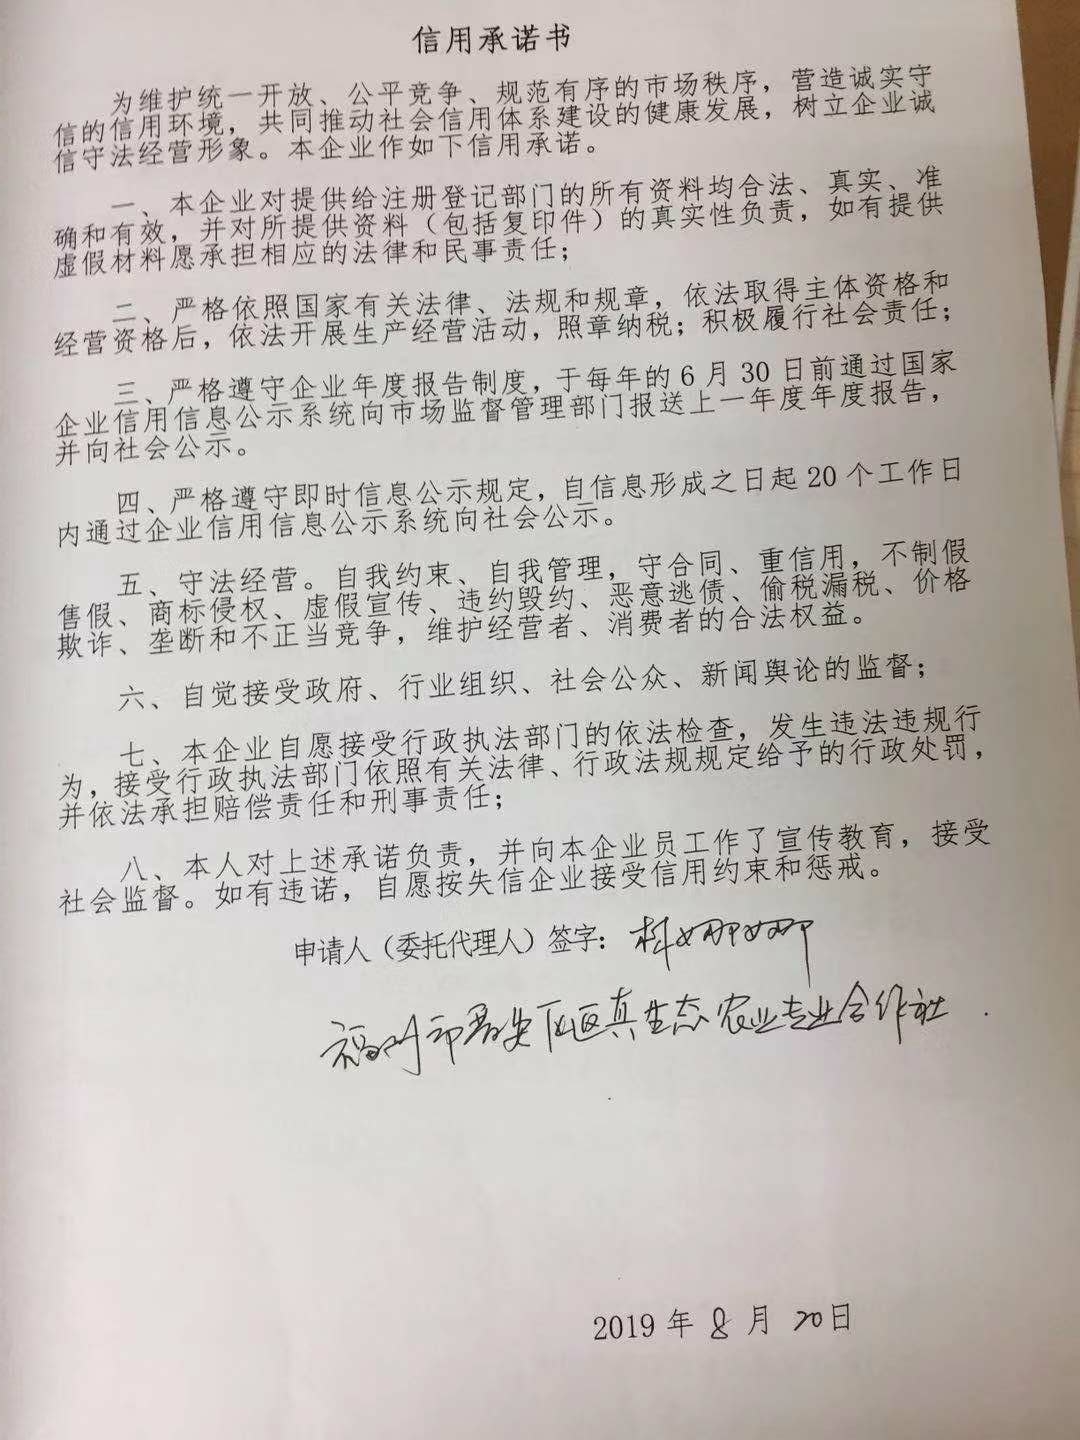 信用承诺书
为维护统一开放、公平竞争、规范有序的市场秩序，营造诚实守
信的信用环境，共同推动社会信用体系建设的健康发展，树立企业诚
信守法经营形象。本企业作如下信用承诺。
一、本企业对提供给注册登记部门的所有资料均合法、真实、准
确和有效，并对所提供资料（包括复印件）的真实性负责，如有提供
虚假材料愿承担相应的法律和民事责任；
二、严格依照国家有关法律、法规和规章，依法取得主体资格和
经营资格后，依法开展生产经营活动，照章纳税；积极履行社会责任；
三、严格遵守企业年度报告制度，于每年的6月30日前通过国家
企业信用信息公示系统向市场监督管理部门报送上一年度年度报告，
并向社会公示。
四、严格遵守即时信息公示规定，自信息形成之日起20个工作日
内通过企业信用信息公示系统向社会公示。
五、守法经营。自我约束、自我管理，守合同、重信用，不制假
售假、商标侵权、虚假宣传、违约毁约、恶意逃债、偷税漏税、价格
欺诈、垄断和不正当竞争，维护经营者、消费者的合法权益。
六、自觉接受政府、行业组织、社会公众、新闻舆论的监督；
七、本企业自愿接受行政执法部门的依法检查，发生违法违规行
为，接受行政执法部门依照有关法律、行政法规规定给予的行政处罚，
并依法承担赔偿责任和刑事责任；
八、本人对上述承诺负责，并向本企业员工作了宣传教育，接受
社会监督。如有违诺，自愿按失信企业接受信用约束和惩戒。
申请人（委托代理人）签字：娜娜
福州市晋安区真生态农业专业合作社
2019年8月20日